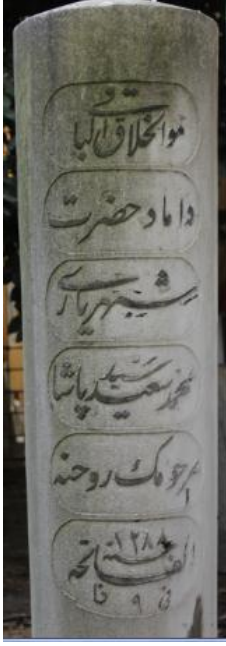 هو الخلاق الباقي
داماد حضرت
شهرياري
محمد سعيد پاشا
مرحومك روحنه
الفاتحه
سنه ١٢٨٨
في ٩